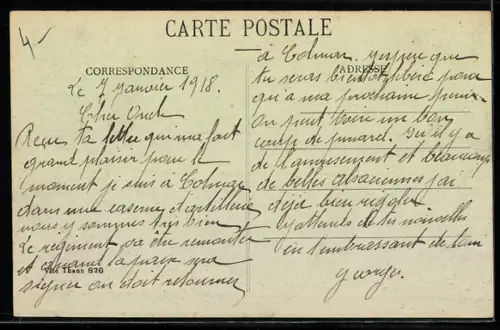 4.-
CARTE POSTALE
CORRESPONDANCE
ADRESSE
Le 7 Janvier 1918.
Cher Oncle
Recu ta lettre qui ma fait
grand plaisir pour le
moment je suis à Colmar
dans une caserne d'artillerie
nous y sommes très bien
Le regiment va être remonter
et quand la paix sera
signer on doit retourner
Visé Thaon 876
à Colmar. J'espère que
tu seras bientôt libéré pour
qu'a ma prochaine perm
on peut boire un bon
coup de pinard. Ici il y a
de l'amusement et beaucoup
de belles alsaciennes j'ai
déjà bien rigoler
J'attends de tes nouvelles
en t'embrassant de loin
Georges.